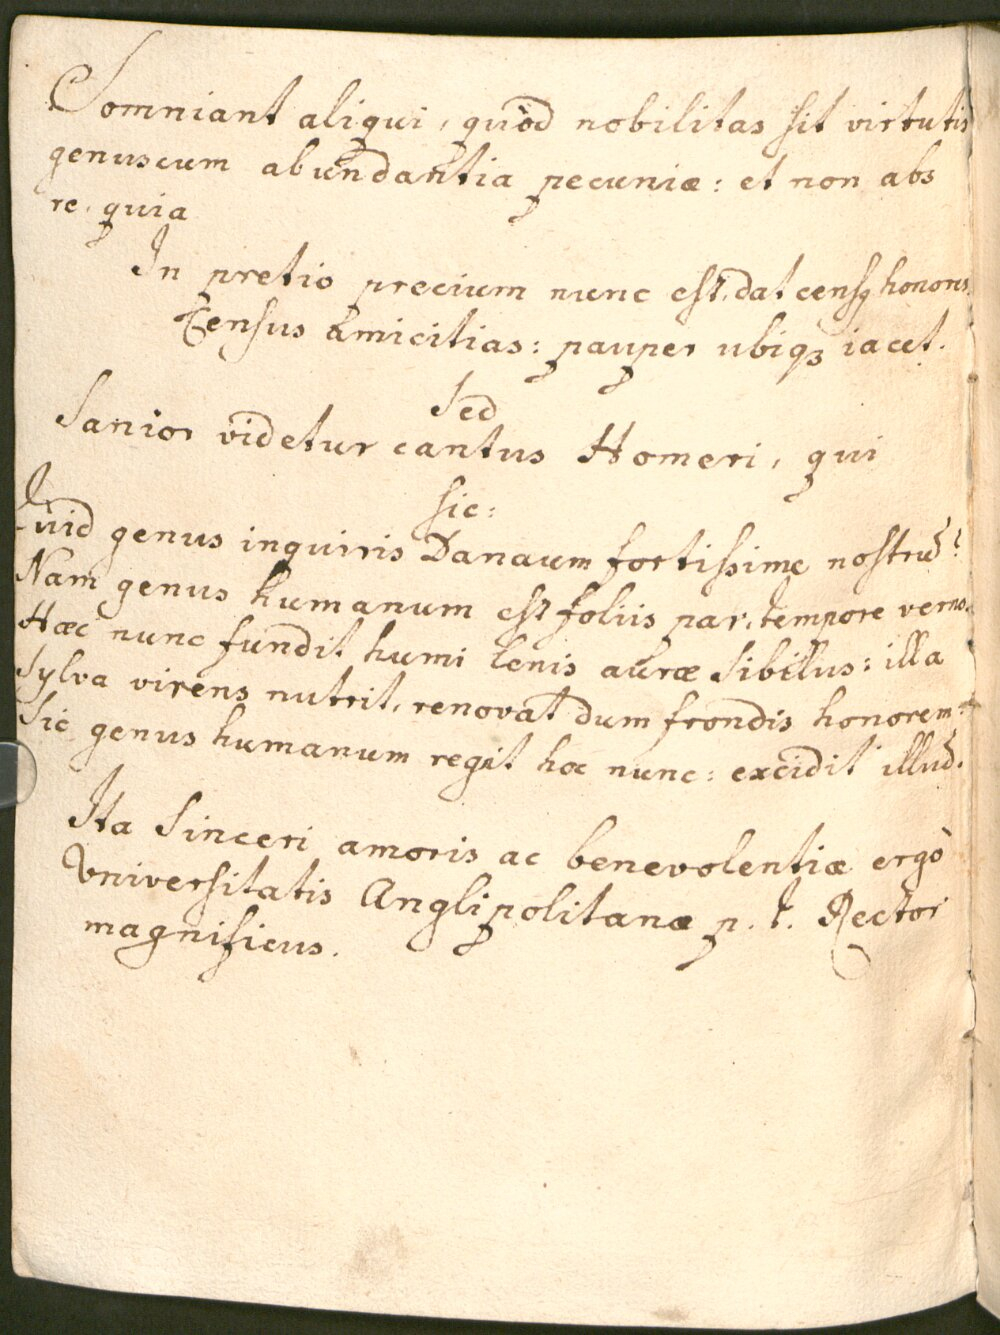 Somniant aliqui, quòd nobilitas sit virtutis
genus cum abundantia pecuniæ: et non abs
re, quia
In pretio precium nunc est, dat censꝯ honores
Census amicitias: pauper ubiqꝫ iacet.
Sed
Sanior videtur cantus Homeri, qui
sic:
Quid genus inquiris Danaum fortissime nostrū?
Nam genus humanum est foliis par, tempore verno.
Hæc nunc fundit humi lenis auræ sibilus: illa
Sylva virens nutrit, renovat dum frondis honorem:
Sic genus humanum regit hoc nunc: excidit illud.
Ita sinceri amoris ac benevolentiæ ergò
Vniversitatis Anglipolitanæ p. t. Rector
magnificus.